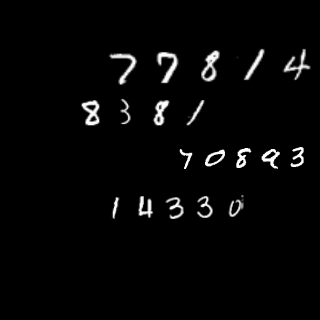 77814
8381
70893
14330